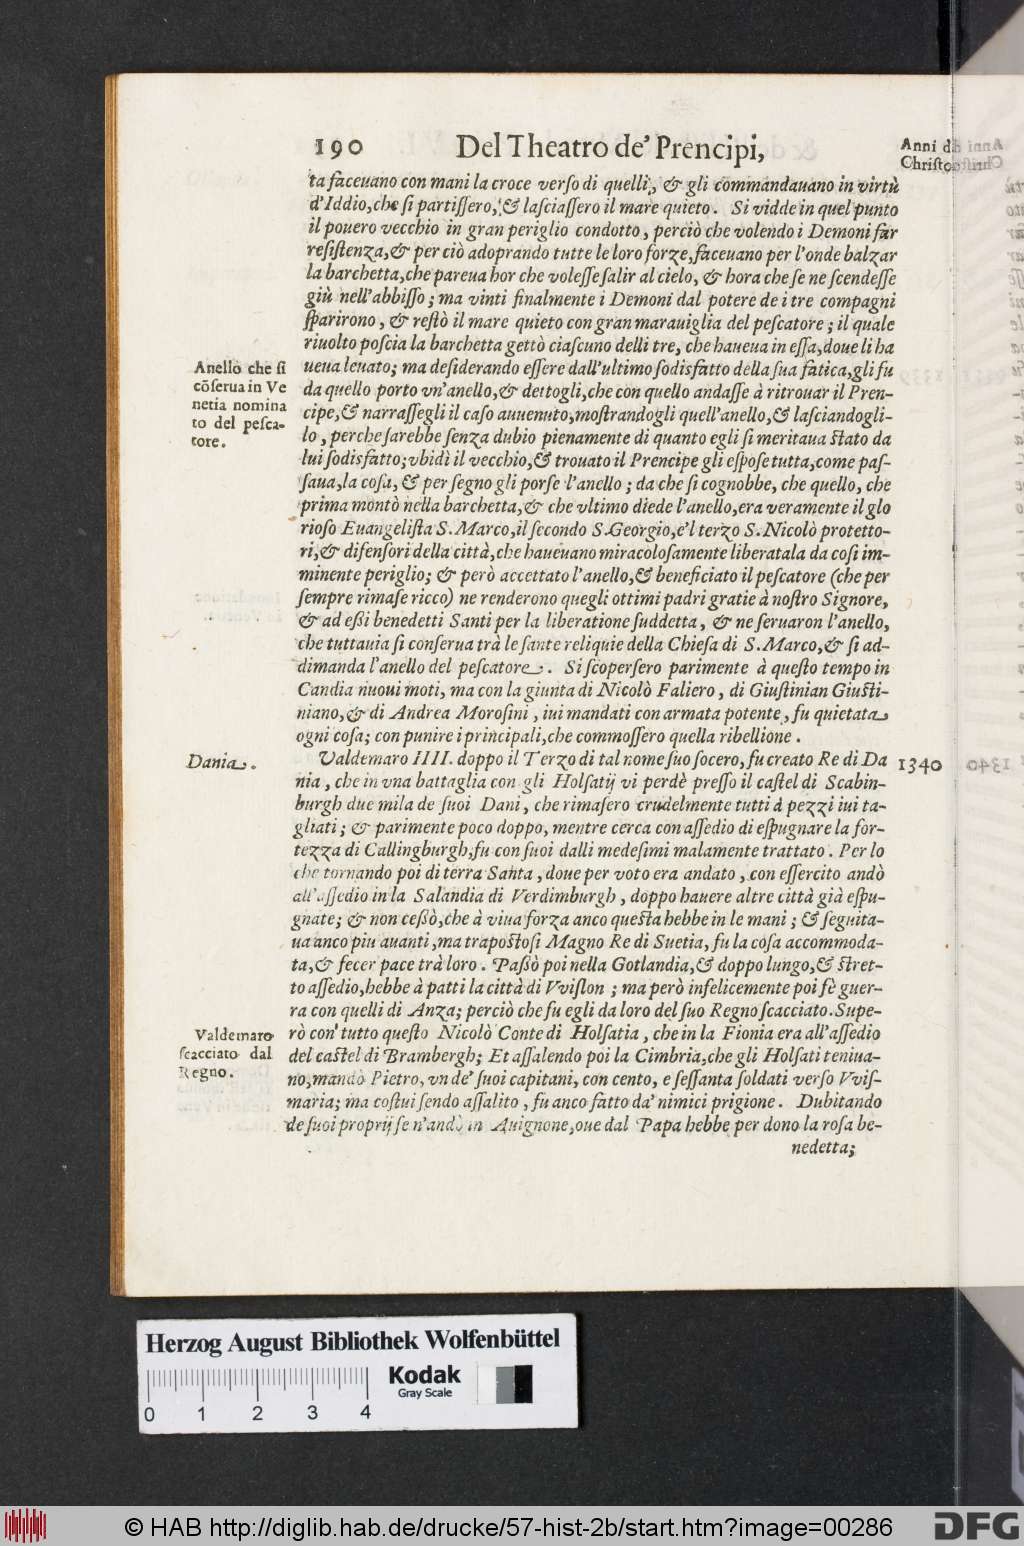 190 Del Theatro de' Prencipi,
Anni di
Christo
ta faceuano con mani la croce verſo di quelli, & gli commandauano in virtù
d'Iddio, che ſi partiſſero, & laſciaſſero il mare quieto. Si vidde in quel punto
il pouero vecchio in gran periglio condotto, perciò che volendo i Demoni far
reſiſtenza, & per ciò adoprando tutte le loro forze, faceuano per l'onde balzar
la barchetta, che pareua hor che voleſſe ſalir al cielo, & hora che ſe ne ſcendeſſe
giù nell'abbiſſo; ma vinti finalmente i Demoni dal potere de i tre compagni
ſparirono, & reſtò il mare quieto con gran marauiglia del peſcatore; il quale
riuolto poſcia la barchetta gettò ciaſcuno delli tre, che haueua in eſſa, doue li ha
Anello che ſi
cōſerua in Ve
netia nomina
to del peſca-
tore.
ueua leuato; ma deſiderando eſſere dall'ultimo ſodisfatto della ſua fatica, gli fu
da quello porto vn'anello, & dettogli, che con quello andaſſe à ritrouar il Pren-
cipe, & narraſſegli il caſo auuenuto, moſtrandogli quell'anello, & laſciandogli-
lo, perche ſarebbe ſenza dubio pienamente di quanto egli ſi meritaua ſtato da
lui ſodisfatto; vbidì il vecchio, & trouato il Prencipe gli eſpoſe tutta, come paſ-
ſaua, la coſa, & per ſegno gli porſe l'anello; da che ſi cognobbe, che quello, che
prima montò nella barchetta, & che vltimo diede l'anello, era veramente il glo
rioſo Euangeliſta S. Marco, il ſecondo S. Georgio, e'l terzo S. Nicolò protetto-
ri, & difenſori della città, che haueuano miracoloſamente liberatala da coſi im-
minente periglio; & però accettato l'anello, & beneficiato il peſcatore (che per
ſempre rimaſe ricco) ne renderono quegli ottimi padri gratie à noſtro Signore,
& ad eßi benedetti Santi per la liberatione ſuddetta, & ne ſeruaron l'anello,
che tuttauia ſi conſerua trà le ſante reliquie della Chieſa di S. Marco, & ſi ad-
dimanda l'anello del peſcatore. Si ſcoperſero parimente à queſto tempo in
Candia nuoui moti, ma con la giunta di Nicolò Faliero, di Giuſtinian Giuſti-
niano, & di Andrea Moroſini, iui mandati con armata potente, fu quietata
ogni coſa; con punire i principali, che commoſſero quella ribellione.
Dania.
Valdemaro IIII. doppo il Terzo di tal nome ſuo ſocero, fu creato Re di Da
1340
nia, che in vna battaglia con gli Holſatij vi perdè preſſo il caſtel di Scabin-
burgh due mila de ſuoi Dani, che rimaſero crudelmente tutti à pezzi iui ta-
gliati; & parimente poco doppo, mentre cerca con aſſedio di eſpugnare la for-
tezza di Callingburgh, fu con ſuoi dalli medeſimi malamente trattato. Per lo
che tornando poi di terra Santa, doue per voto era andato, con eſſercito andò
all'aſſedio in la Salandia di Verdimburgh, doppo hauere altre città già eſpu-
gnate; & non ceßò, che à viua forza anco queſta hebbe in le mani; & ſeguita-
ua anco piu auanti, ma trapoſtoſi Magno Re di Suetia, fu la coſa accommoda-
ta, & fecer pace trà loro. Paßò poi nella Gotlandia, & doppo lungo, & ſtret-
to aſſedio, hebbe à patti la città di Vviſlon; ma però infelicemente poi fè guer-
ra con quelli di Anza; perciò che fu egli da loro del ſuo Regno ſcacciato. Supe-
Valdemaro
ſcacciato dal
Regno.
rò con tutto queſto Nicolò Conte di Holſatia, che in la Fionia era all'aſſedio
del caſtel di Brambergh; Et aſſalendo poi la Cimbria, che gli Holſati teniua-
no, mandò Pietro, vn de' ſuoi capitani, con cento, e ſeſſanta ſoldati verſo Vviſ-
maria; ma coſtui ſendo aſſalito, fu anco fatto da' nimici prigione. Dubitando
de ſuoi proprij ſe n'andò in Auignone, oue dal Papa hebbe per dono la roſa be-
nedetta;
Herzog August Bibliothek Wolfenbüttel
Kodak
Gray Scale
0 1 2 3 4
© HAB http://diglib.hab.de/drucke/57-hist-2b/start.htm?image=00286
DFG